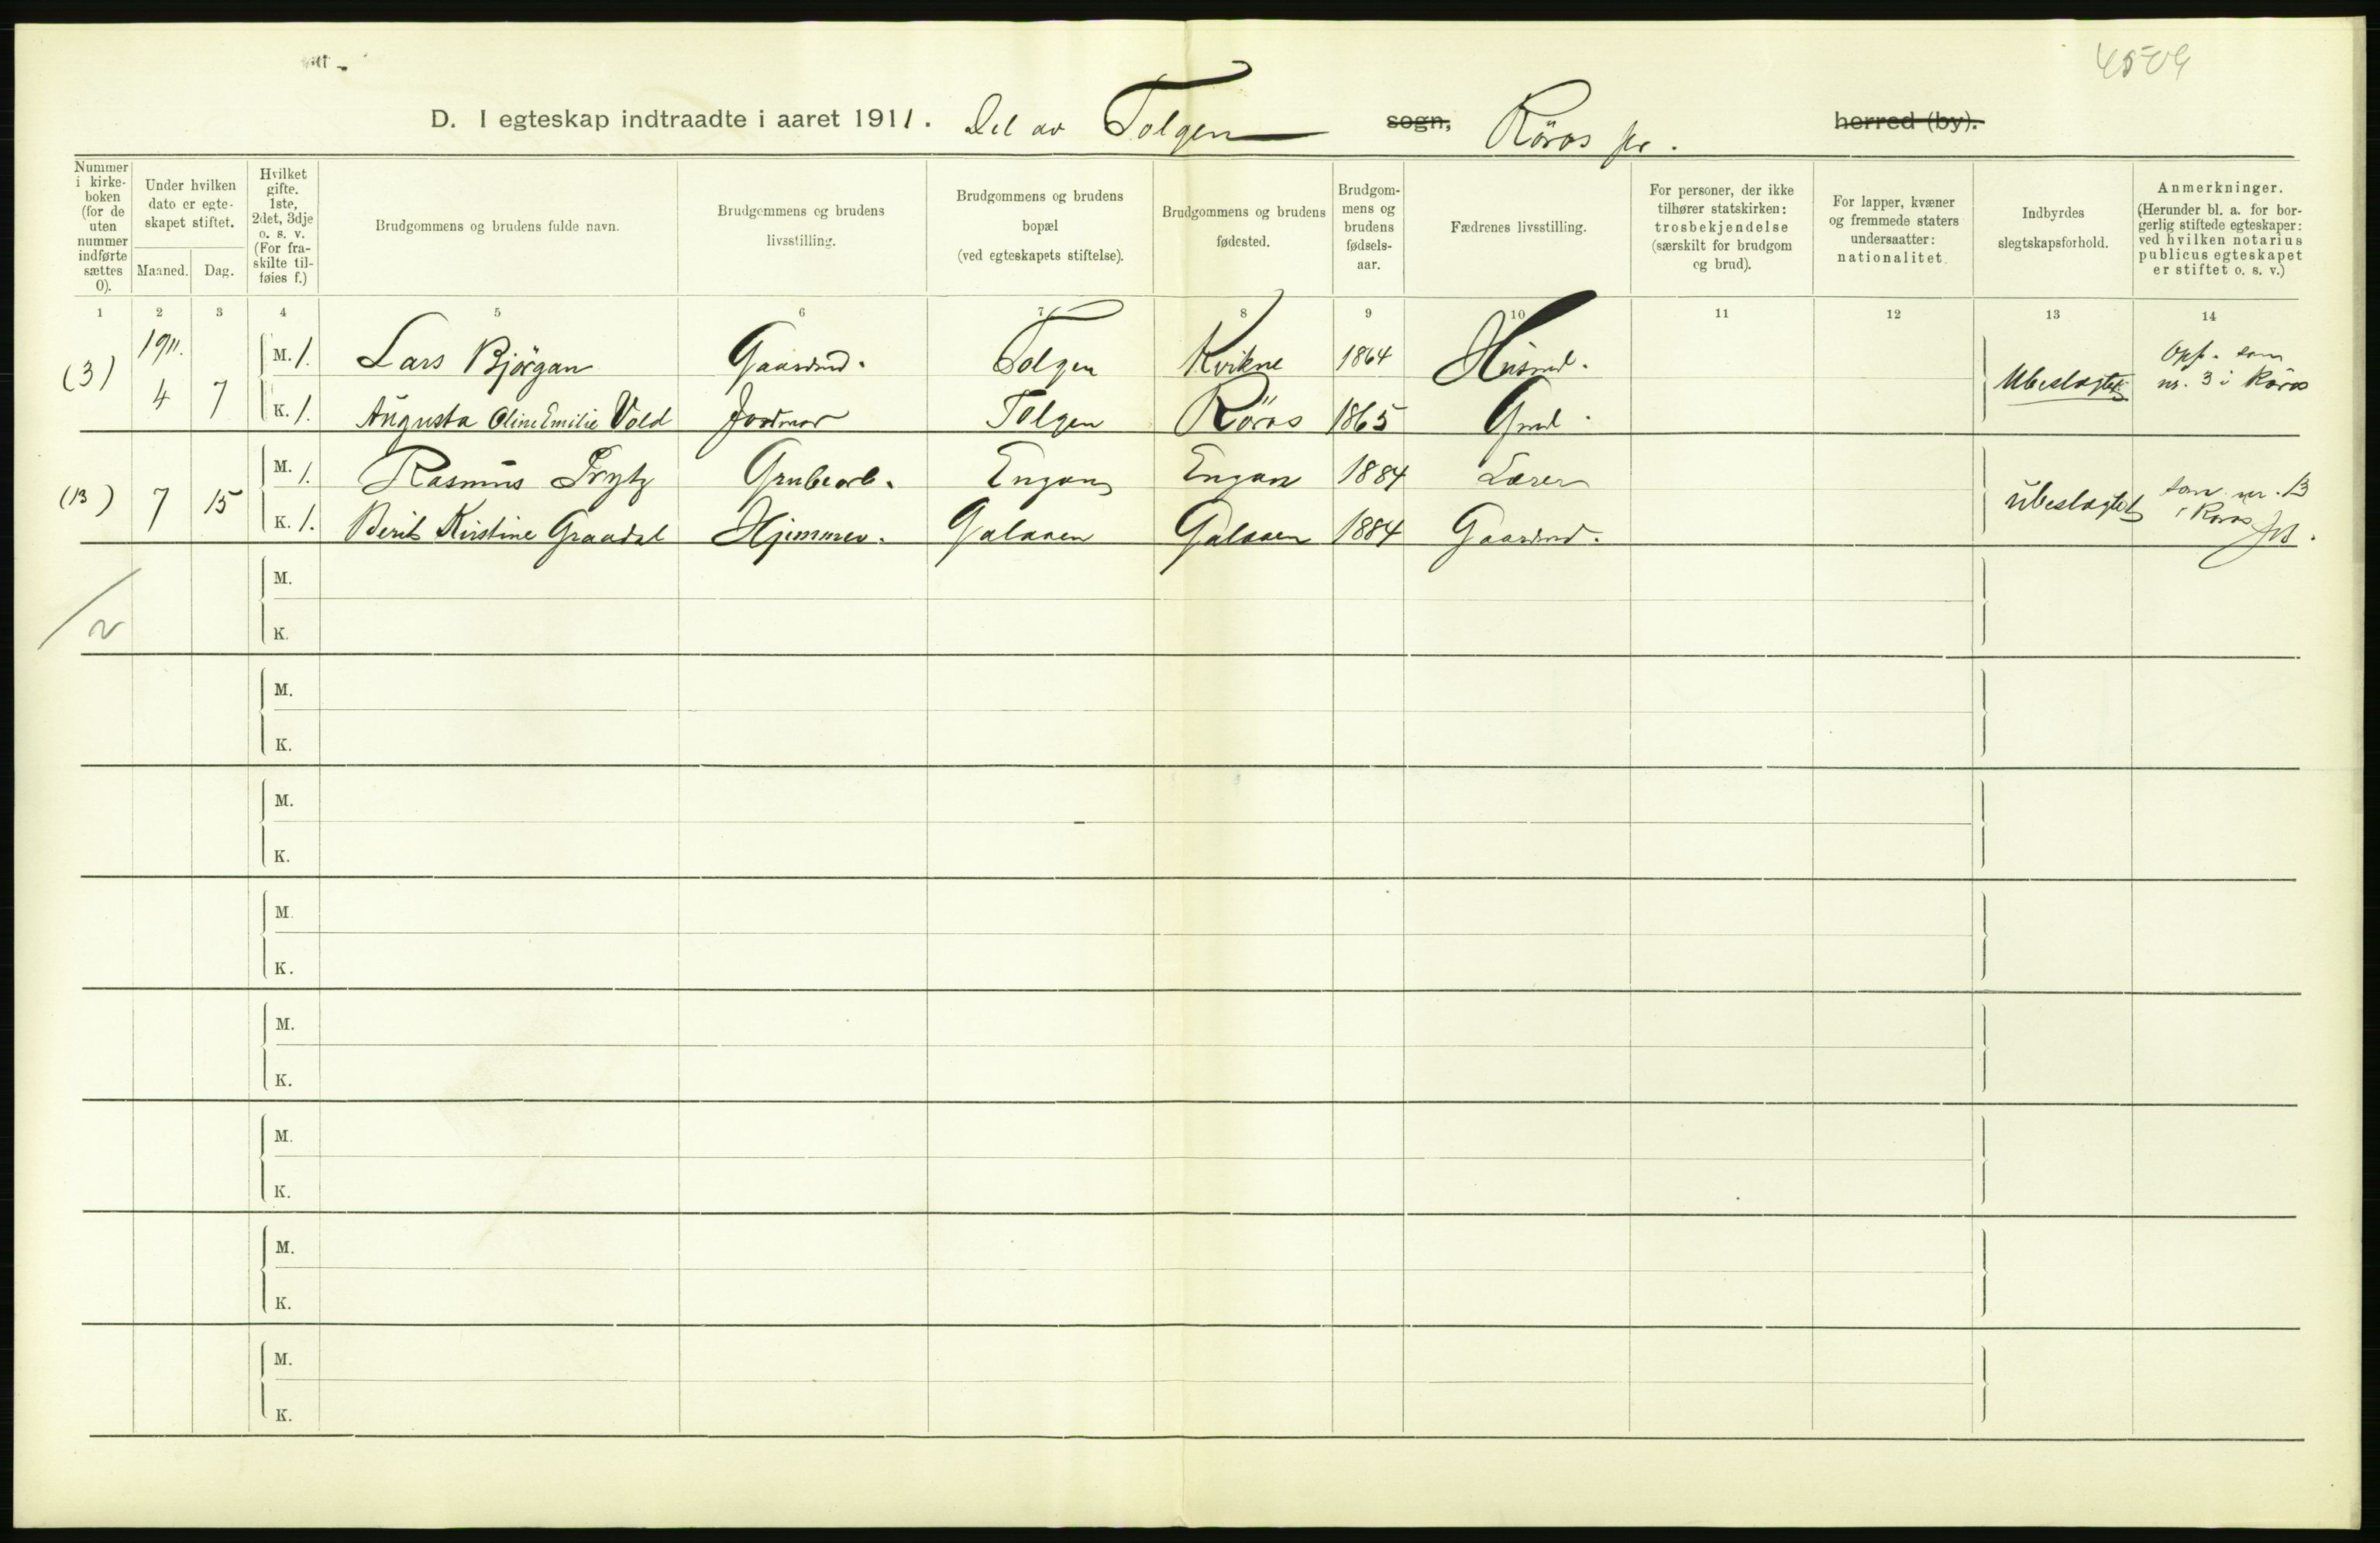 4504
D. I egteskap indtraadte i aaret 1911. Del av Tolgen sogn, Röros pr. herred (by).
Nummer i kirke-boken (for de uten nummer indførte sættes 0).
Under hvilken dato er egte-skapet stiftet.
Maaned. Dag.
Hvilket gifte. 1ste, 2det, 3dje o. s. v. (For fra-skilte til-føies f.)
Brudgommens og brudens fulde navn.
Brudgommens og brudens livsstilling.
Brudgommens og brudens bopæl (ved egteskapets stiftelse).
Brudgommens og brudens fødested.
Brudgom-mens og brudens fødsels-aar.
Fædrenes livsstilling.
For personer, der ikke tilhører statskirken: trosbekjendelse (særskilt for brudgom og brud).
For lapper, kvæner og fremmede staters undersaatter: nationalitet.
Indbyrdes slegtskapsforhold.
Anmerkninger. (Herunder bl. a. for bor-gerlig stiftede egteskaper: ved hvilken notarius publicus egteskapet er stiftet o. s. v.)
1 2 3 4 5 6 7 8 9 10 11 12 13 14
(3) 1911. 4 7 M. 1. Lars Björgan Gaardmd. Tolgen Kvikne 1864 Husmd. Ubeslægtet Opf. som nr. 3 i Röros
K. 1. Augusta Oline Emilie Vold Jordmor Tolgen Röros 1865 Grmd.
(13) 7 15 M. 1. Rasmus Prytz Grubearb. Engan Engan 1884 Lærer Ubeslægtet som nr. 13 i Röros
K. 1. Berit Kirstine Graadal Hjemmev. Galaaen Galaaen 1884 Gaardmd.
2
M.
K.
M.
K.
M.
K.
M.
K.
M.
K.
M.
K.
M.
K.
M.
K.